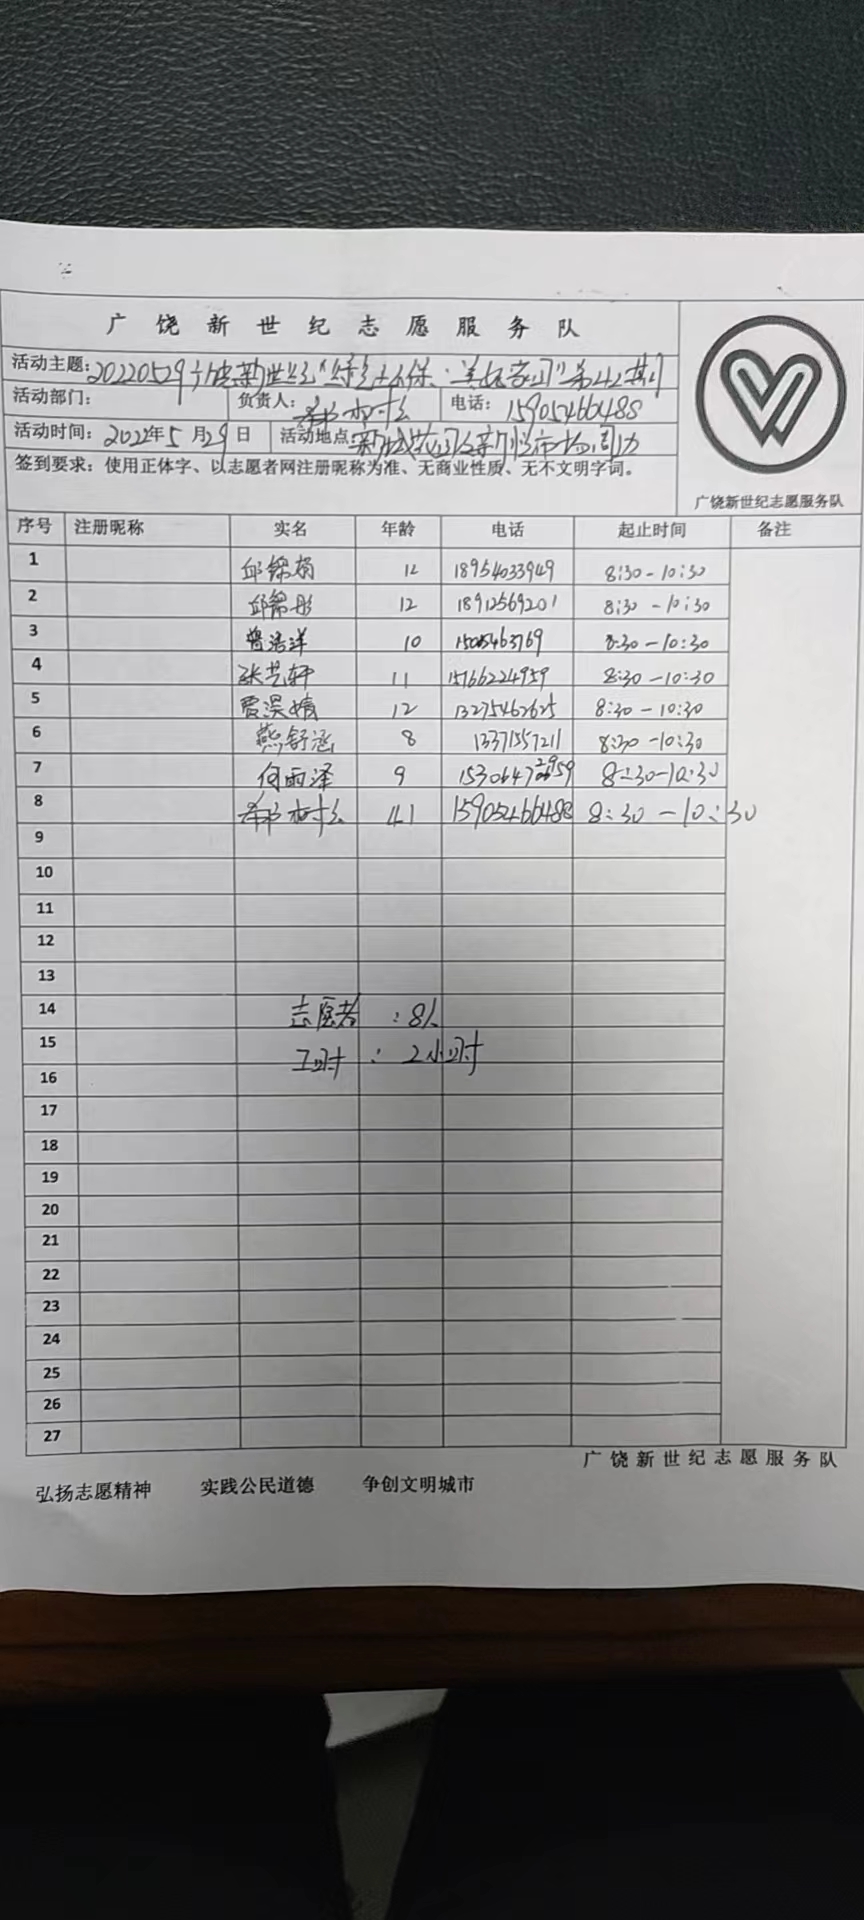 广饶新世纪志愿服务队
活动主题：20220529广饶新世纪"绿色环保·美好家园"第42期
活动部门： 负责人： 电话：15905466488
活动时间：2022年5月29日 活动地点：新城花园
签到要求：使用正体字、以志愿者网注册昵称为准、无商业性质、无不文明字词。
广饶新世纪志愿服务队
序号 注册昵称 实名 年龄 电话 起止时间 备注
1 邱锦 12 18954033949 8:30-10:30
2 邱锦彤 12 18912569201 8:30-10:30
3 曾浩洋 10 8:30-10:30
4 张艺轩 11 15166224959 8:30-10:30
5 贾淏婧 12 13275462625 8:30-10:30
6 燕舒涵 8 13371557211 8:30-10:30
7 何雨泽 9 8:30-10:30
8 41 15905466488 8:30-10:30
9
10
11
12
13
14 志愿者：8人
15 工时：2小时
16
17
18
19
20
21
22
23
24
25
26
27
广饶新世纪志愿服务队
弘扬志愿精神 实践公民道德 争创文明城市